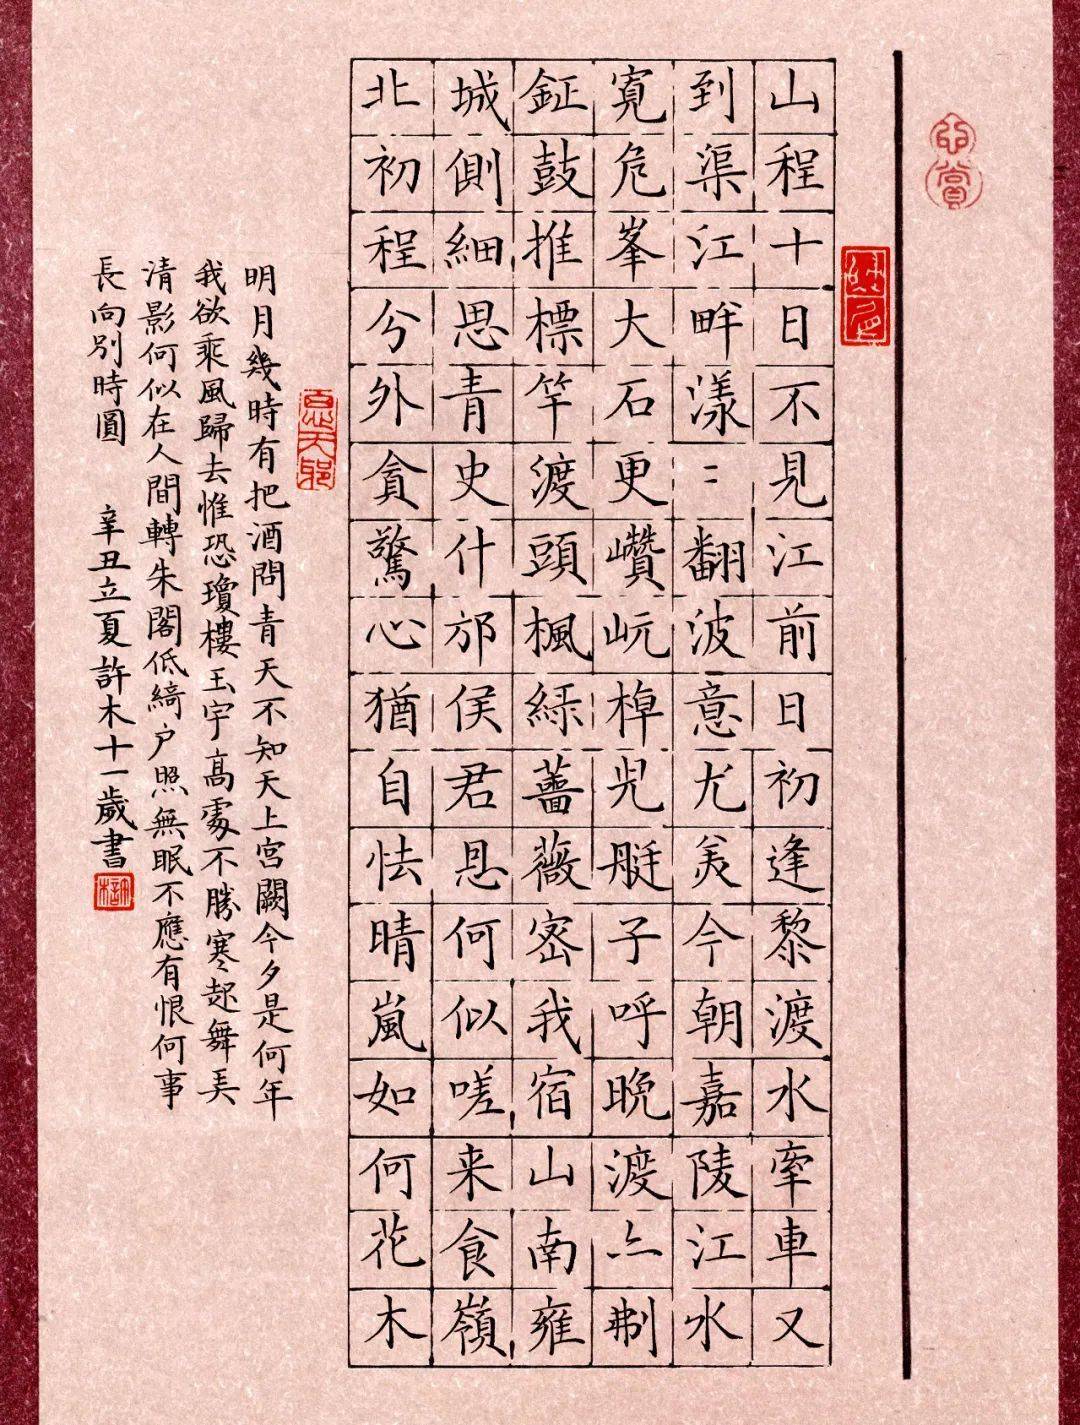 山程十日不見江前日初逢黎渡水牽車又
到渠江畔漾〻翻波意尤美今朝嘉陵江水
寬危峯大石更巑岏棹兠艇子呼晚渡亠制
鉦鼓推標竿渡頭楓綠薔薇密我宿山南雍
城側細思青史什邡侯君恩何似嗟来食嶺
北初程兮外貪驚心猶自怯晴嵐如何花木
明月幾時有把酒問青天不知天上宮闕今夕是何年
我欲乘風歸去惟恐瓊樓玉宇高處不勝寒起舞弄
清影何似在人間轉朱閣低綺户照無眠不應有恨何事
長向別時圓 辛丑立夏許木十一歲書